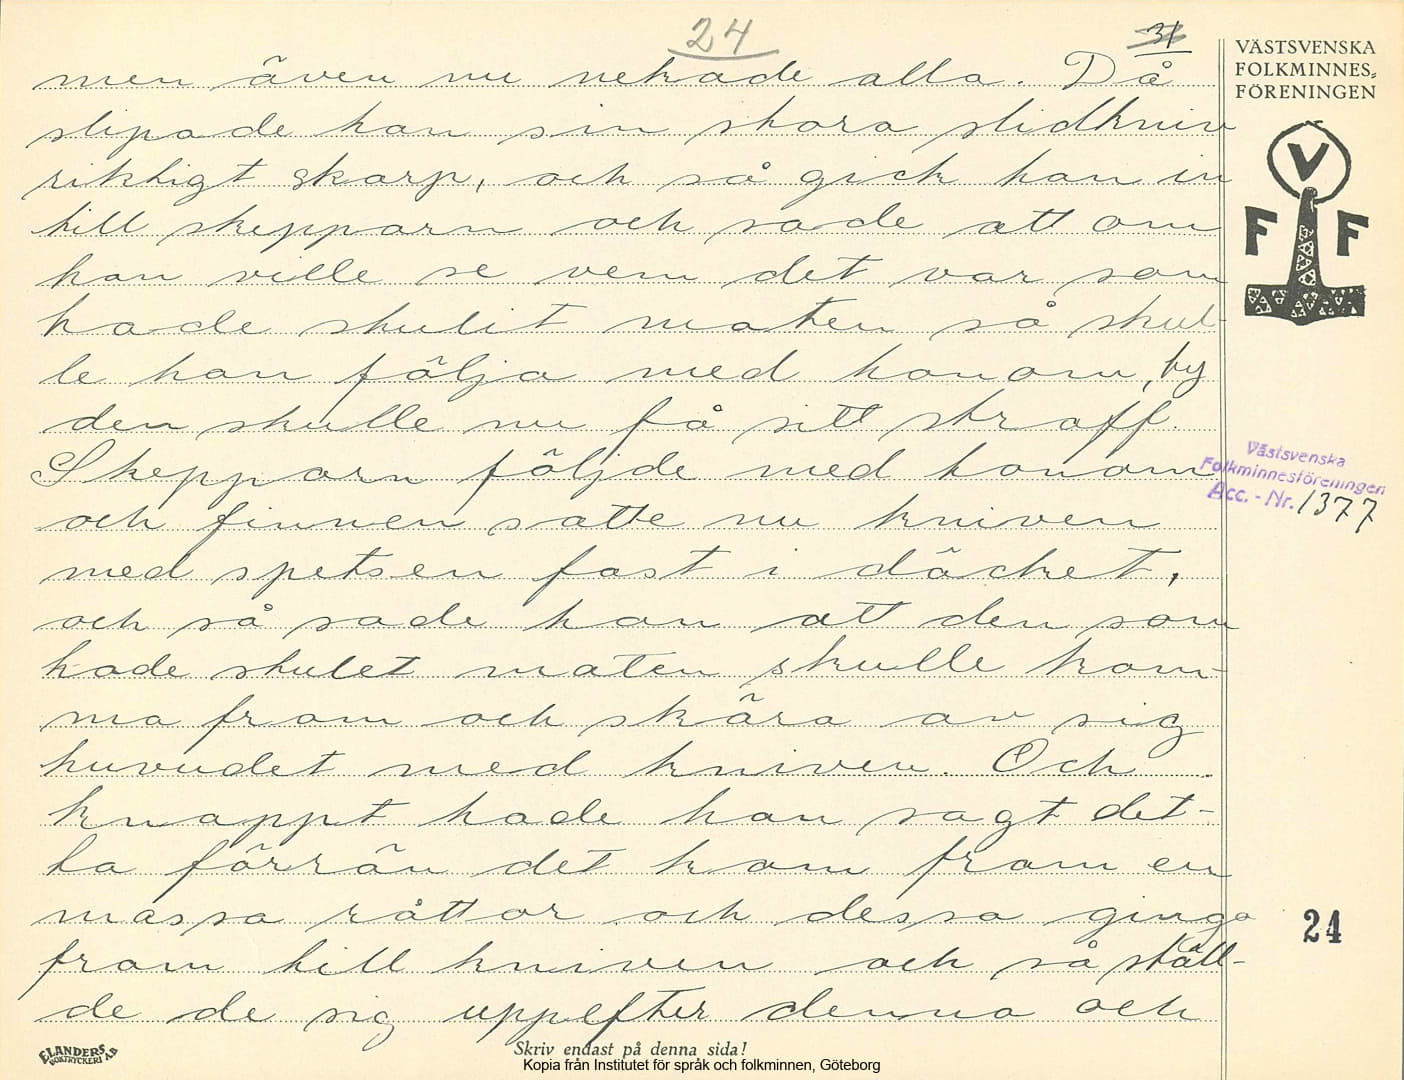 24
31
men även nu nekade alla. Då
slipade han sin stora slidkniv
riktigt skarp, och så gick han in
till skepparn och sade att om
han ville se vem det var som
hade stulit maten så skul-
le han följa med honom, ty
den skulle nu få sitt straff.
Skepparn följde med honom
och finnen satte nu kniven
med spetsen fast i däcket,
och så sade han att den som
hade stulet maten skulle kom-
ma fram och skära av sig
huvudet med kniven. Och
knappt hade han sagt det-
ta förrän det kom fram en
massa råttor och dessa gingo
fram till kniven och så ställ-
de de sig uppefter denna och
VÄSTSVENSKA
FOLKMINNES-
FÖRENINGEN
V
F F
Västsvenska
Folkminnesföreningen
Acc. - Nr. 1377
24
ELANDERS
BOKTRYCKERI AB
Skriv endast på denna sida!
Kopia från Institutet för språk och folkminnen, Göteborg